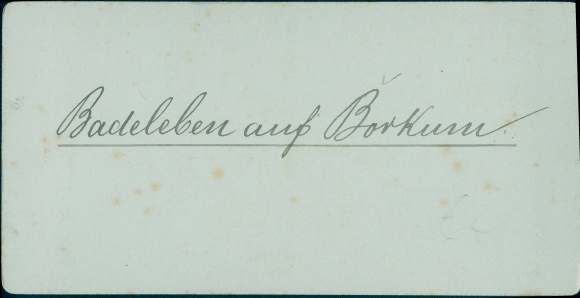 Badeleben auf Borkum